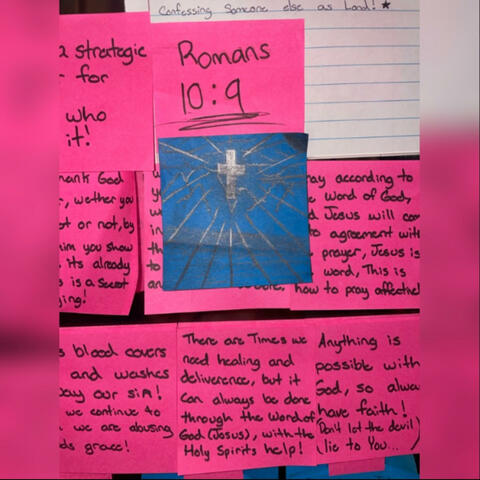 Confessing Someone else as Lord! ★
a strategic
for
who
it!
Romans
10:9
hank God
, wether you
ot or not, by
him you show
its already
s is a secret
ying!
w
y
w
in
th
to
an
ray according to
Word of God,
d Jesus will com
to agreement with
prayer, Jesus is
word, This is
how to pray affectivel
s blood covers
and washes
way our sin!
we continue to
we are abusing
ds grace!
There are Times we
need healing and
deliverence, but it
can always be done
through the Word of
God (Jesus), with the
Holy Spirits help!
Anything is
possible with
God, so alwa
have faith!
(Don't let the devil)
(lie to You...)